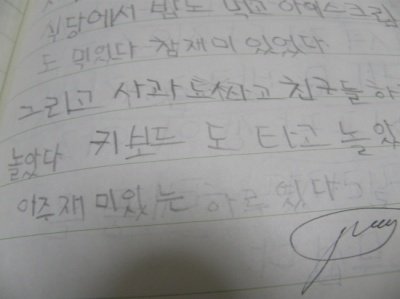 식당에서 밥도 먹고 아이스크림
도 먹었다 참 재미 있었다
그리고 사과도 따고 친구들하
놀았다 키보드 도 타고 놀았
아주 재 미있 는 하루 였다